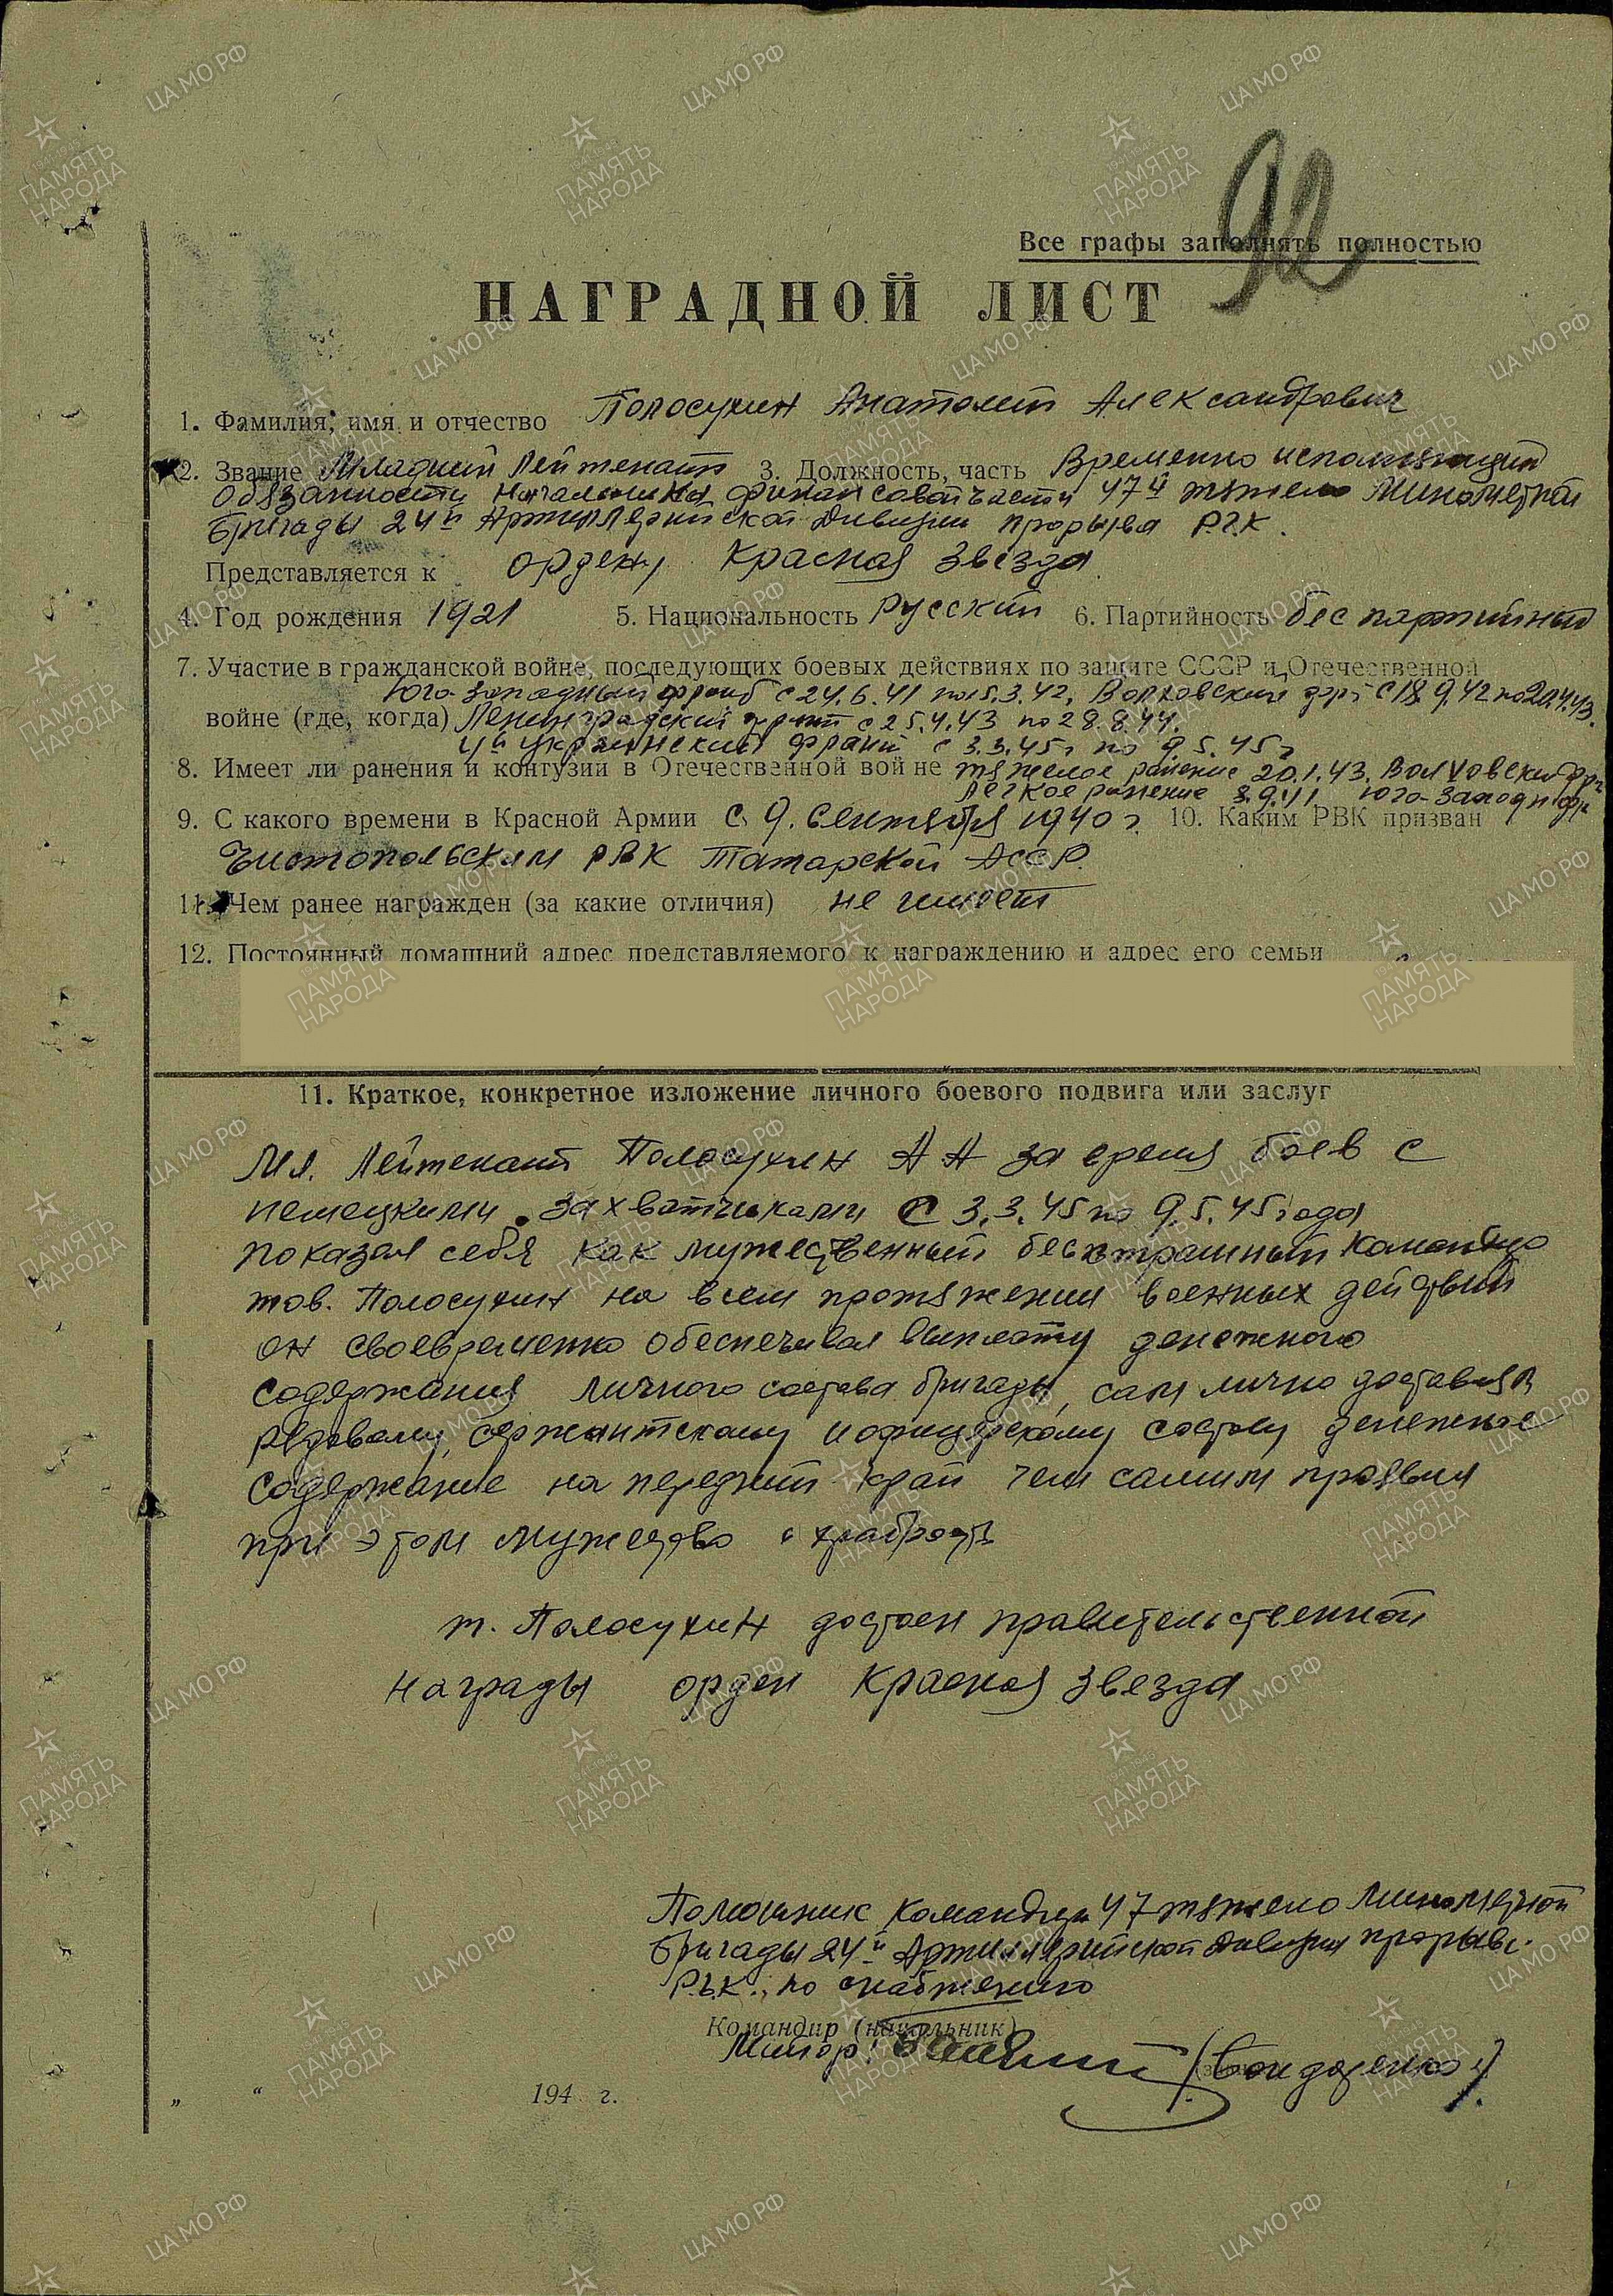 92
Все графы заполнять полностью
НАГРАДНОЙ ЛИСТ
1. Фамилия, имя и отчество Полосухин Анатолий Александрович
2. Звание Младший Лейтенант 3. Должность, часть Временно исполняющий
обязанности Начальника финансовой части 47й тяжело Минометной
Бригады 24й Артиллерийской Дивизии прорыва Р.Г.К.
Представляется к ордену Красная Звезда
4. Год рождения 1921 5. Национальность Русский 6. Партийность бес партийный
7. Участие в гражданской войне, последующих боевых действиях по защите СССР и Отечественной
Юго-западный фронт с 24.6.41 по 15.3.42, Волховский фр. с 18.9.42 по 20.4.43.
войне (где, когда) Ленинградский фронт с 25.4.43 по 28.8.44.
4й украинский фронт с 3.3.45г по 9.5.45г
8. Имеет ли ранения и контузии в Отечественной войне тяжелое ранение 20.1.43. Волховский фр.
Легкое ранение 8.9.41 Юго-Западн фр
9. С какого времени в Красной Армии с 9. Сентября 1940 г. 10. Каким РВК призван
Чистопольским РВК Татарской АССР.
11. Чем ранее награжден (за какие отличия) не имеет
12. Постоянный домашний адрес представляемого к награждению и адрес его семьи
11. Краткое, конкретное изложение личного боевого подвига или заслуг
Мл. Лейтенант Полосухин А А за время боев с
немецкими захватчиками с 3.3.45 по 9.5.45 года
показал себя как мужественный бесстрашный командир
тов. Полосухин на всем протяжении военных действий
он своевременно обеспечивал выплату денежного
содержания личного состава бригады, сам лично доставлял
рядовому, сержантскому и офицерскому составу денежное
содержание на передний край чем самим проявил
при этом мужество и храбрость
т. Полосухин достоен правительственной
награды орден Красная звезда
Помошник командира 47 тяжело Минометной
Бригады 24й Артиллерийской дивизии прорыва
Р.Г.К. по снабжению
Командир (начальник)
Майор: (Бондаренко)
„ “ 194 г.
ПАМЯТЬ НАРОДА
ЦА МО РФ